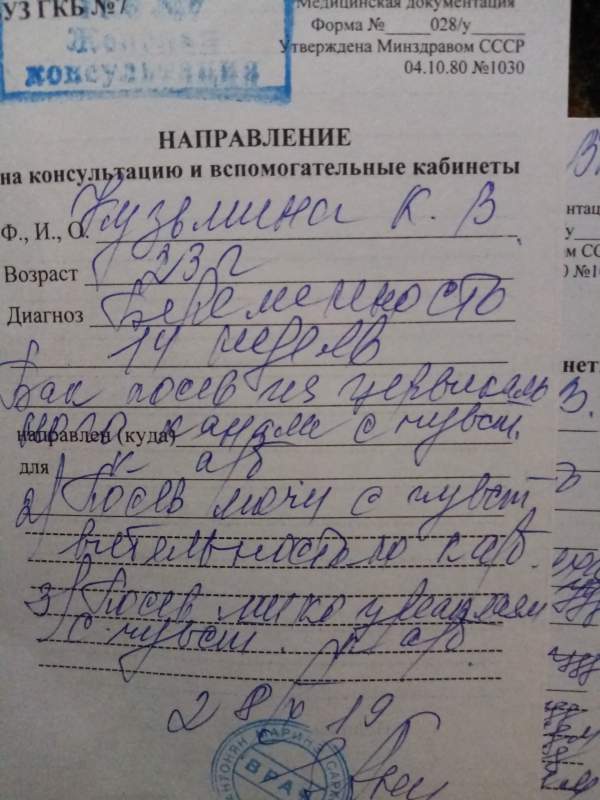 УЗ ГКБ №7
Женская
консультация
Медицинская документация
Форма №_____028/у______
Утверждена Минздравом СССР
04.10.80 №1030
НАПРАВЛЕНИЕ
на консультацию и вспомогательные кабинеты
Ф., И., О. Кузьмина К. В
Возраст 23 г
Диагноз Беременность
14 недель
Бак посев из цервикаль
ного канала с чувст.
направлен (куда)
для к а/б
2) Посев мочи с чувст
вительностью к а/б.
3) Посев
с чувст. к а/б
28/ 19
АНТОНЯН
ВРАЧ